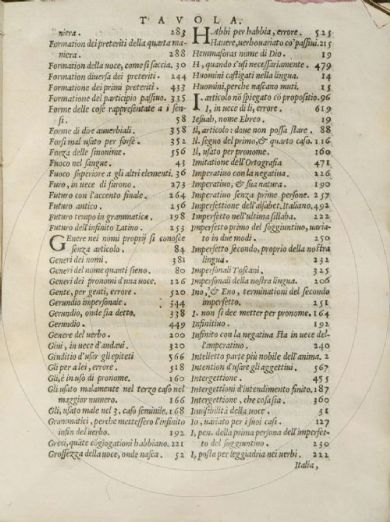 TAVOLA.
niera. 283
Formation de i preteriti della quarta maniera. 288
Formation della voce, come si faccia. 30
Formation diuersa de i preteriti. 244
Formatione de i primi preteriti. 433
Formatione del participio passiuo. 335
Forme delle cose rappresentate a i sensi. 58
Forme di dire auuerbiali. 358
Forsi mal usato per forse. 352
Forza delle sinonime. 556
Fuoco nel sangue. 43
Fuoco superiore a gli altri elementi. 36
Furo, in uece di furono. 273
Futuro con l'accento finale. 264
Futuro antico. 256
Futuro tempo in grammatica. 198
Futuro dell'infinito Latino. 253
GEnere ne i nomi proprij si conosce senza articolo. 84
Generi de i nomi. 381
Generi del nome quanti sieno. 80
Generi de i pronomi d'una uoce. 126
Gente, per genti, errore. 520
Gerundio impersonale. 344
Gerundio, onde sia detto. 338
Gerundio. 449
Genere del uerbo. 200
Gini, in uece d'andaui. 320
Giuditio d'usar gli epiteti 566
Gli per a lei, errore. 518
Gli, è in uso di pronome. 160
Gli usato malamente nel terzo caso nel maggior numero. 166
Gli, usato male nel 3. caso feminile. 168
Grammatici, perche mettessero l'infinito infin del uerbo. 192
Greci, quāte cōgiogationi habbiano. 221
Grossezza della uoce, onde nasca. 52
HAbbi per habbia, errore. 525
Hauere, uerbo uariato co' passiui. 215
Hemmasoras nome di Dio. 19
H, quando s'usi necessariamente. 479
Huomini castigati nella lingua. 14
Huomini, perche nascano muti. 15
I. articolo nō piegato cō propositio. 96
I, in uece di li, errore. 619
Iesuah, nome Ebreo. 19
Il, articolo: doue non possa stare. 88
Il segno del primo, & quarto caso. 116
Il, usato per pronome. 160
Imitatione dell'Ortografia 471
Imperatiuo con la negatiua. 226
Imperatiuo, & sua natura. 190
Imperatiuo senza prime persone. 257
Imperfettione dell'alfabet. Italiano. 492
Imperfetto nell'ultima sillaba. 222
Imperfetto primo del soggiuntiuo, uariato in due modi. 250
Imperfetto secondo, proprio della nostra lingua. 232
Impersonali Toscani. 325
Impersonali della nostra lingua. 206
Ino, & Eno, terminationi del secondo imperfetto. 251
I. non si dee metter per pronome. 164
Infinitiuo. 192
Infinito con la negatiua sta in uece dell'imperatiuo. 240
Intelletto parte più nobile dell'anima. 2
Intention d'usare gli aggettiui. 567
Intergettione. 455
Intergettioni d'intendimento finito. 187
Intergettione, che cosa sia. 360
Inuisibilità della uoce. 51
Io, uariato per i suoi casi. 127
I, pen. della prima persona dell'imperfetto del soggiuntiuo. 239
I, posta per leggiadria ne i uerbi. 222
Italia,